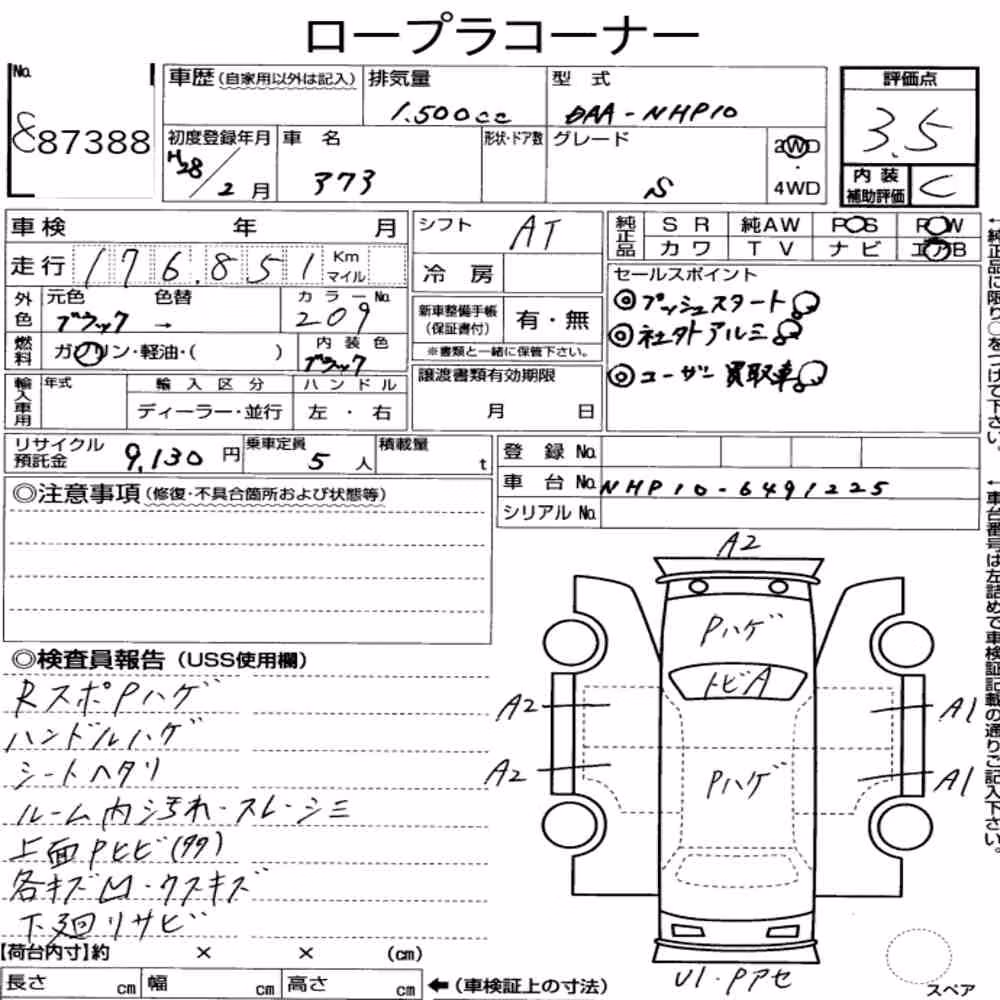 ロープラコーナー
No. 887388
車歴(自家用以外は記入)
排気量 1.500cc
型式 DAA-NHP10
評価点 3.5
初度登録年月 H28/2月
車名 アクア
形状・ドア数
グレード S
2WD・4WD
内装補助評価 C
車検 年 月
走行 176.851 Km マイル
シフト AT
冷房
純正品 SR 純AW POS POW
カワ TV ナビ エアB
セールスポイント
◎プッシュスタート
◎社外アルミ
◎ユーザー買取車
外色 元色 ブラック → 色替 カラーNo. 209
燃料 ガソリン・軽油・( ) 内装色 ブラック
新車整備手帳(保証書付) 有・無
※書類と一緒に保管下さい。
輸入車用 年式 輸入区分 ハンドル
ディーラー・並行 左・右
譲渡書類有効期限
月 日
リサイクル預託金 9,130円
乗車定員 5人
積載量 t
登録No.
車台No. NHP10-6491225
シリアルNo.
◎注意事項(修復・不具合箇所および状態等)
◎検査員報告(USS使用欄)
RスポPハゲ
ハンドルハゲ
シートヘタリ
ルーム内汚れ・スレ・シミ
上面Pヒビ(タタ)
各キズM・ウスキズ
下廻リサビ
【荷台内寸】約 × × (cm)
長さ cm 幅 cm 高さ cm ←(車検証上の寸法)
A2
Pハゲ
トビA
A2
A1
A2
A1
Pハゲ
U1・Pアセ
スペア
←純正品に限り○をつけて下さい。
←車台番号は左詰めで車検証記載の通りご記入下さい。